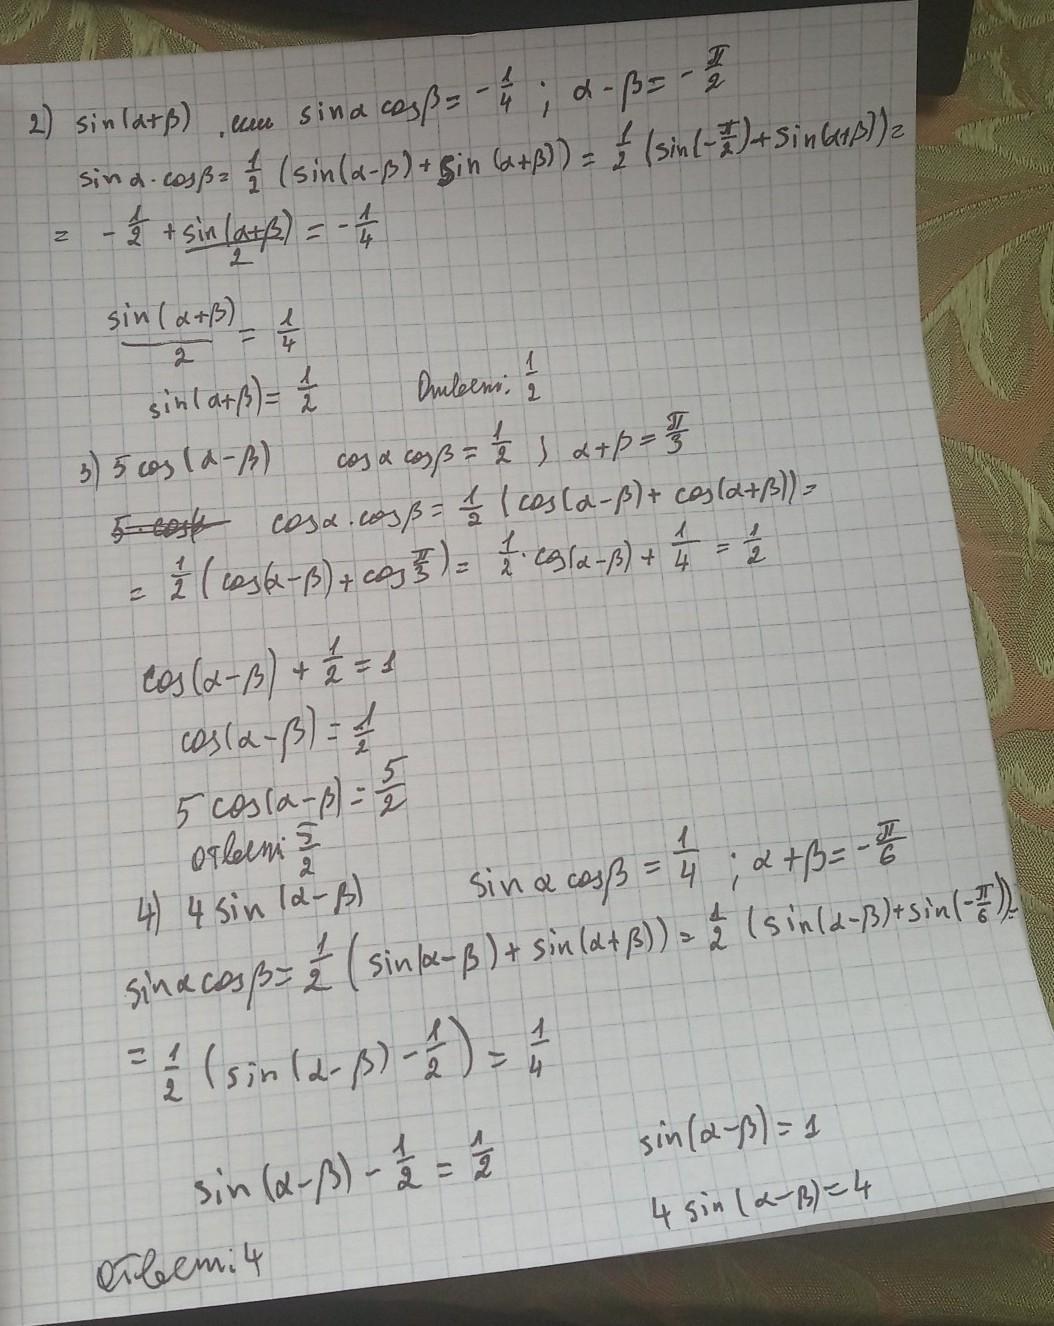 2) sin(α+β), если sinα cosβ = -1/4 ; α-β = -π/2
sinα·cosβ = 1/2 (sin(α-β) + sin(α+β)) = 1/2 (sin(-π/2) + sin(α+β)) =
= -1/2 + sin(α+β)/2 = -1/4
sin(α+β)/2 = 1/4
sin(α+β) = 1/2 Ответ: 1/2
3) 5 cos(α-β) cosα cosβ = 1/2 ; α+β = π/3
cosα·cosβ = 1/2 (cos(α-β) + cos(α+β)) =
= 1/2 (cos(α-β) + cos π/3) = 1/2 · cos(α-β) + 1/4 = 1/2
cos(α-β) + 1/2 = 1
cos(α-β) = 1/2
5 cos(α-β) = 5/2
Ответ: 5/2
4) 4 sin(α-β) sinα cosβ = 1/4 ; α+β = -π/6
sinα cosβ = 1/2 (sin(α-β) + sin(α+β)) = 1/2 (sin(α-β) + sin(-π/6)) =
= 1/2 (sin(α-β) - 1/2) = 1/4
sin(α-β) - 1/2 = 1/2 sin(α-β) = 1
4 sin(α-β) = 4
Ответ: 4